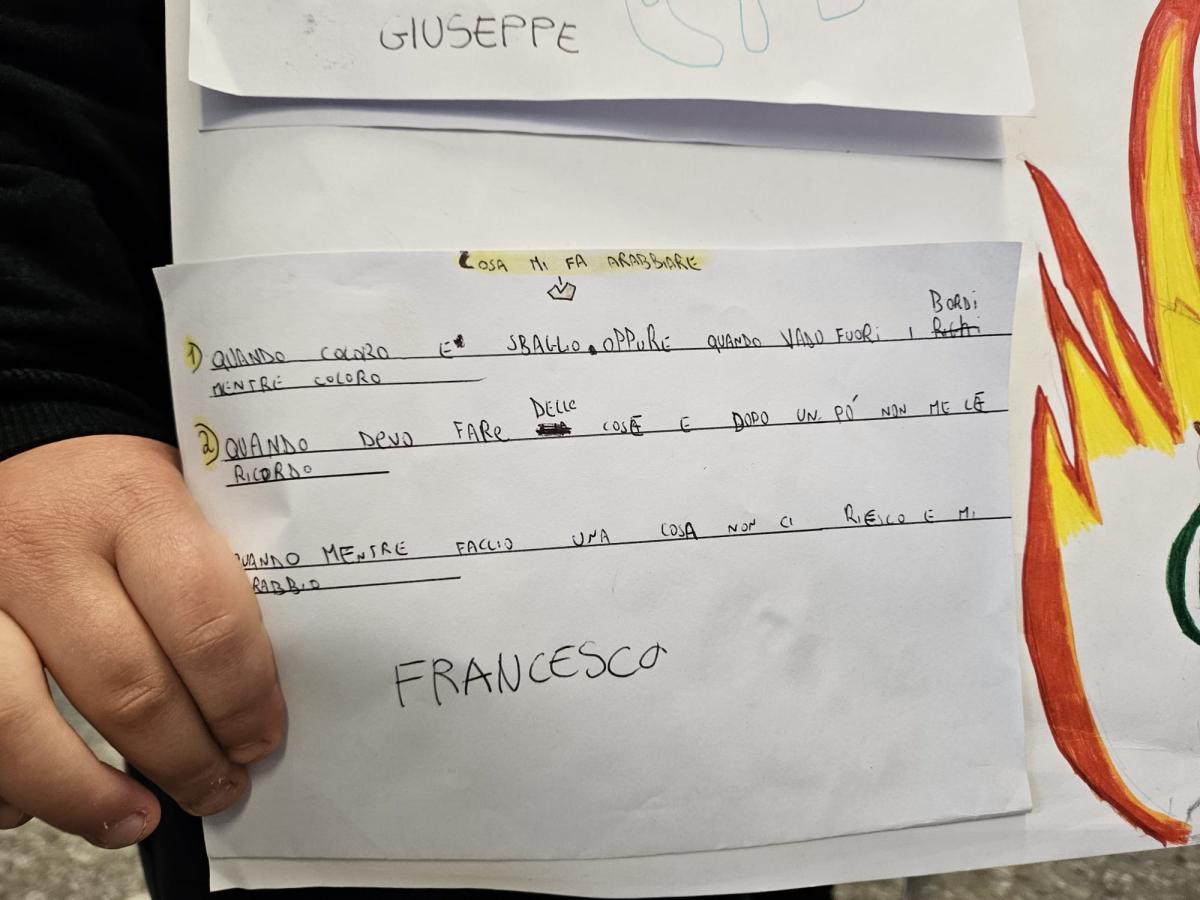 GIUSEPPE
COSA MI FA ARABBIARE
BORDI
1) QUANDO COLORO E SBAGLIO. OPPURE QUANDO VADO FUORI I
MENTRE COLORO
DELLE
2) QUANDO DEVO FARE COSE E DOPO UN PÓ NON ME LE
RICORDO
UANDO MENTRE FACCIO UNA COSA NON CI RIESCO E MI
RABBIO
FRANCESCO